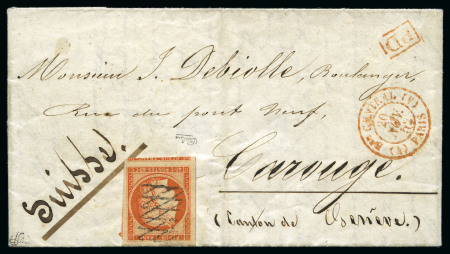 PD
Monsieur J. Debiolle, Boulanger,
Rue du pont Neuf,
Carouge.
(Canton de Genève.)
Suisse.
Bau CENTRAL
PARIS